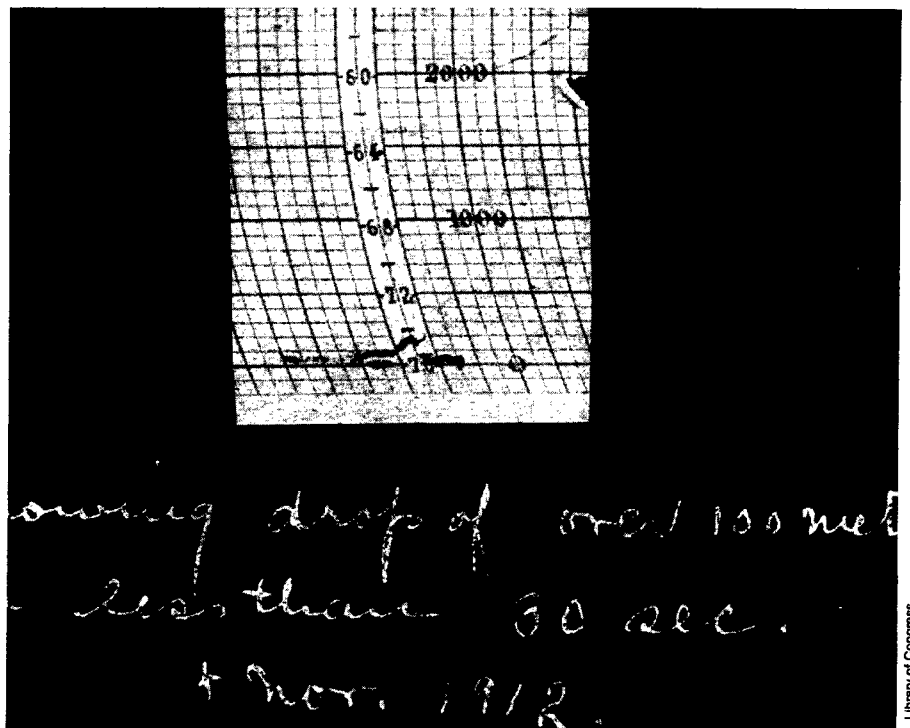 60
2000
64
68
1000
72
76
0
owing drop of over 100 met
less than 60 sec.
Nov. 1912.
Library of Congress